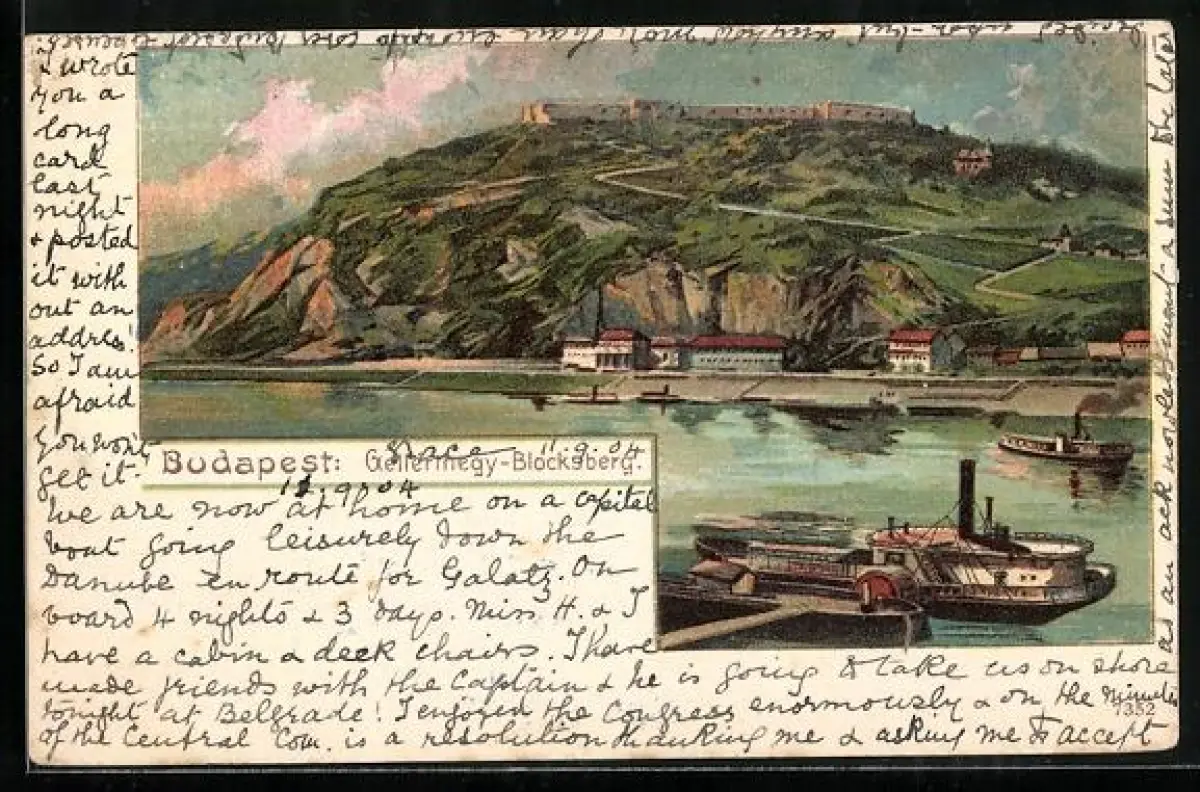 & wrote
you a
long
card
last
night
& posted
it with
out an
address!
So I am
afraid
you won't
get it.
Budapest: Gellérthegy-Blocksberg.
11.9.04
11.9.04
We are now at home on a capital
boat going leisurely down the
Danube en route for Galatz. On
board 4 nights & 3 days. Miss H. & I
have a cabin & deck chairs. I have
made friends with the Captain & he is going to take us on shore
tonight at Belgrade! I enjoyed the Congress enormously & on the minutes
1352
of the Central Com. is a resolution thanking me & asking me to accept
as an acknowledgment a sum the later